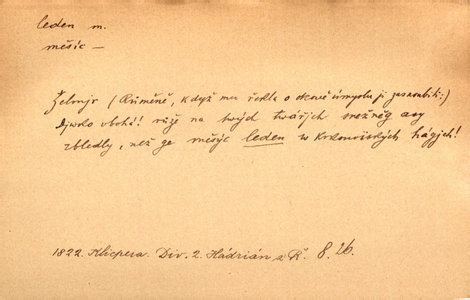 leden m.
měsíc —
Želmjr (Růměně, když mu řekla o otcově úmyslu ji zasnoubiti:)
Djwko ubohá! růže na twých twářjch snežněg asy
zbledly, než ge měsýc leden w Krkonošských hágjch!
1822. Klicpera. Div. 2. Hádrián z Ř. 8. 26.